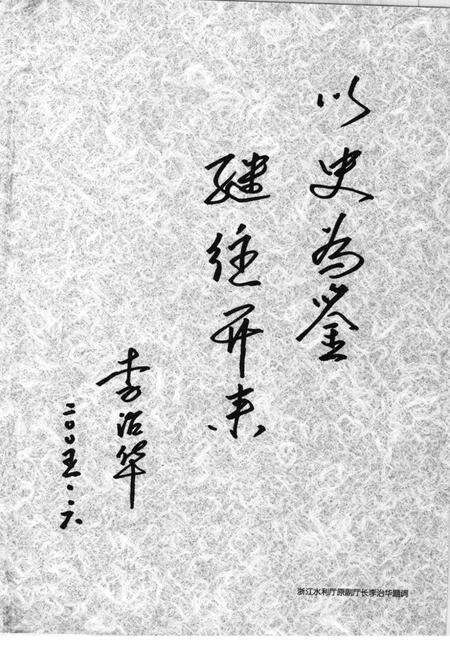 以史为鉴
继往开来
李治华
二〇〇五.六
浙江水利厅原副厅长李治华题词